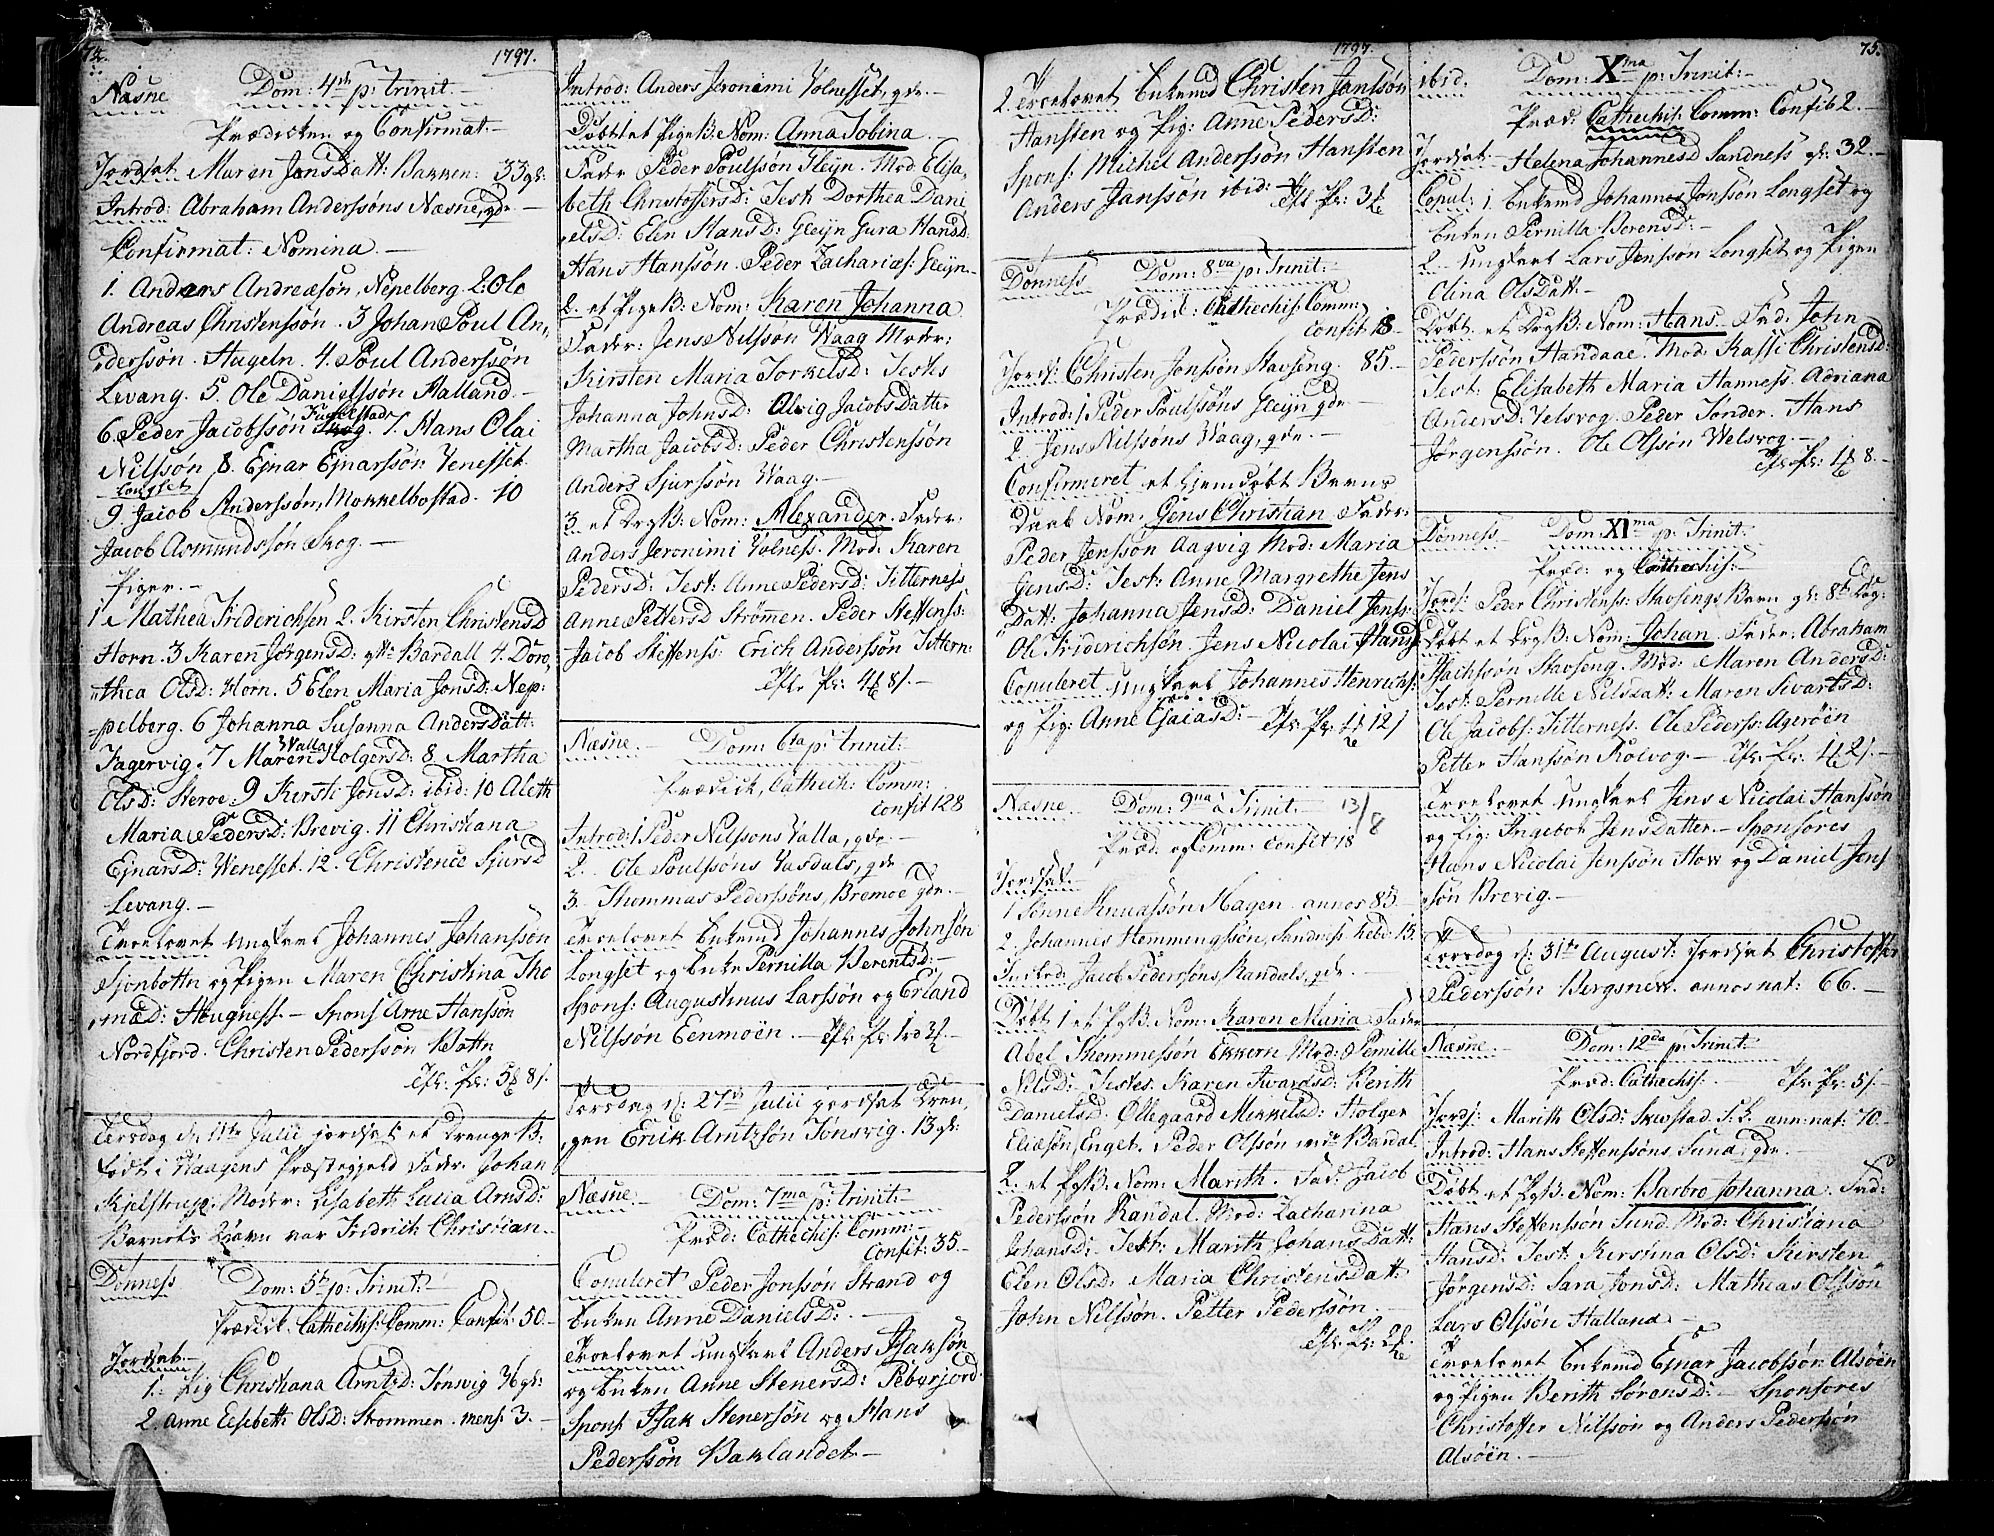 74.
1797.
Næsne Dom: 4de p: trinit:
Prædicken og Confirmat:
Jordsat Maren JensDatt: Bakken: 33 gl:
Introd: Abraham Anderssøns Næsne, qde
Confirmat: Nomina
1. Anders Andreasøn, Nepelberg 2. Ole
Andreas Christenssøn. 3 Johan Poul An„
„derssøn. Hugeln. 4. Poul Anderssøn
Levang. 5. Ole Danielssøn Halland.
6. Peder Jacobssøn 7. Hans Olai
Nilssøn 8. Ejnar Ejnarssøn Venesset
Longset
9. Jacob Anderssøn, Mokkelbostad. 10
Jacob Asmundssøn Skog.
Piger.
1. Mathea Friderichsen 2. Kirsten Christensd
Horn. 3 Karen Jørgensd: Bardall 4. Doro„
„thea Olsd: Horn. 5 Elen Maria Jonsd: Nep:
pelberg. 6 Johanna Susanna AndersDatt:
Valla
Fagervig. 7 Maren Holgersd: 8. Martha
Olsd: Steroe. 9 Kirsti Jonsd: ibid: 10 Aleth
Maria Pedersd: Brevig. 11 Christiana
Ejnarsd: Wenesset. 12. Christence Sjursd
Levang.
Troelovet Ungkarl Johannes Johanssøn
Sjonbottn og Pigen Maren Christina Tho
„mæd: Hougness. Spons Arne Hanssøn
Nordfjord. Christen Pederssøn Bottn
Tirsdag d: 11te Julii jordsat et Drenge B:
født i Waagens Præstegjeld Fader. Johan
Kjelstrup. Moder: Lisabeth Lucia Arnsd:
Barnets Navn var Fridrich Christian.
Dønness Dom: 5t p: Trinit:
Prædick. Cathechis: Comm: Confit: 50.
Jordsat.
1. Pig Christiana Arntzd: Tonsvig 36 gl:
2. Anne Elisbeth Olsd: Strømmen. mens: 3.
Introd: Anders Jeronimi Volnesset, qde.
Døbt 1 et Pige B: Nom: Anna Tobina.
Fader Peder Poulssøn Glejn. Mod: Elisa„
beth Christoffersd: Test Dorthea Dani
„elsd: Elen Hansd: Glejn Gura Hansd:
Hans Hanssøn. Peder Zachariæs: Glejn
2. et Pige B: Nom: Karen Johanna
Fader: Jens Nilssøn Waag Moder:
Kirsten Maria Torkelsd: Testes
Johanna Johnsd: Alvig JacobsDatter
Martha Jacobsd: Peder Christenssøn
Anders Sjurssøn Waag.
3. et Drg B: Nom: Alexander. Fader.
Anders Jeronimi Volness. Mod: Karen
Pedersd: Test: Anne Pedersd: Titterness
Anne Pettersd Strømmen. Peder Steffenss:
Jacob Steffenss: Erich Anderssøn Tittern:
Næsne. Dom: 6ta p: Trinit:
Prædick, Cathech: Comm:
Confit 128
Introd: 1 Peder Nilssons Valla, qde
2. Ole Poulssøns Vasdals, qde
3. Thommas Pederssøns, Bremoe qde.
Troelovet Enkemd Johannes Johnssøn
Longset og Enke Pernilla Berentsd:
Spons: Augustinus Larssøn og Erland
Nilssøn Eenmoen.
Torsdag d: 27de Julii jordsat Dren„
„gen Erik Arntzøn Tonsvig. 13 gl:
Næsne Dom: 7ma p: Trinit:
Præd: Cathechis: Comm:
Confit: 35.
Copuleret Peder Jonssøn Strand og
Enken Anne Danielsd:
Troelovet Ungkarl Anders Isaksøn
og Enken Anne Stenersd: Peberjord.
Spons: Isak Stenersøn og Hans
Pederssøn Baklandet
1797.
2. Troelovet Enkemd Christen Janssøn
Hansten og Pig: Anne Pedersd:
Spons: Michel Anderssøn Hansten
Anders Janssøn ibid:
Dønness Dom: 8va p: Trinit:
Prædick: Cathechis: Comm:
Confit 18
Jords: Christen Jonssøn Stavseng. 85.
Introd: 1 Peder Poulssøns Glejn qde
2. Jens Nilssøns Waag, qde.
Confirmeret et hjemdøbt Barns
Daab Nom: Jens Christian Fader:
Peder Jenssøn Aagvig Mod: Maria
Jensd: Test: Anne Margrethe Jens
Datt: Johanna Jensd: Daniel Jenss:
Ole Friderichsøn. Jens Nicolai Hanss:
Copuleret Ungkarl Johannes Henrichs:
og Pig: Anne Esaiasd:
Næsne. Dom: 9na a Trinit: 13/8
Præd. og Comm: Confit 18
Jordsat
1 Tønne Knudssøn Hagen. annos 85.
2. Johannes Hemmingssøn, Sandnes: hebd: 13.
Introd: Jacob Pederssøns, Randals, qde.
Døbt 1 et Pg B: Nom: Karen Maria Fader
Abel Thommessøn Ekkern Mod: Pernille
Nilsd: Testes. Karen Ivarsd: Berith
Danielsd. Ollegaard Mikkelsd: Holger
Eliæsøn, Enget. Peder Olssøn Bardal
2. et Pg B: Nom: Marith. Fad: Jacob
Pederssøn Randal. Mod: Zacharina
Johansd: Test: Marith JohansDatt:
Elen Olsd: Maria ChristensDatt:
John Nilssøn. Petter Pederssøn.
75.
ibid. Dom: Xma p: Trinit:
Præd: Cathechis: Comm: Confit 2.
Jordsat Helena Johannesd Sandness gl: 32.
Copul: 1. Enkemd Johannes Jonssøn Longset og
Enken Pernilla Berensd:
2 Ungkarl Lars Jenssøn Longset og Pigen
Olina OlsDatt:
Døbt et Drg B: Nom: Hans. Fad: John
Pederssøn Handaae. Mod: Kasti Christensd:
Test: Elisabeth Maria Hanness. Adriana
Andersd: Velsvog. Peder Tønder. Hans
Jørgenssøn. Ole Olssøn Welsvog.
Dønness Dom: XIma p: Trinit:
Præd: og Cathechis:
Jords: Peder Christenss: Stavsengs Barn gl: 8te Dag:
Døbt et Drg B: Nom: Johan. Fader: Abraham
Isachssøn Stavseng. Mod: Maren Andersd:
Test: Pernille NilsDatt: Maren Sivartsd:
Ole Jacobs: Titterness. Ole Pederss: Agerøen
Petter Hanssøn Kolvog.
Troelovet Ungkarl Jens Nicolai Hanssøn
og Pig: Ingebor JensDatter. Sponsores
Hans Nicolai Jenssøn How og Daniel Jens
søn Brevig.
Torsdag d: 31te August: Jordsat Christoffer
Pederssøn Bergsnew. annos nat: 66.
Næsne Dom: 12da p: Trinit:
Præd: Cathechis:
Jords: Marith Olsd: Skavstad. ann: nat: 70.
Introd: Hans Steffenssøns, Sund, qde.
Døbt et Pg B. Nom: Barbro Johanna. Fad:
Hans Steffenssøn Sund. Mod: Christiana
Hansd: Test: Kirstina Olsd: Kirsten
Jørgensd: Sara Jonsd: Mathias Olssøn
Lars Olssøn Halland
Troelovet Enkemd Ejnar Jacobssøn Alsøen
og Pigen Berith Sørensd: Sponsores
Christoffer Nilssøn og Anders Pederssøn
Alsøen.